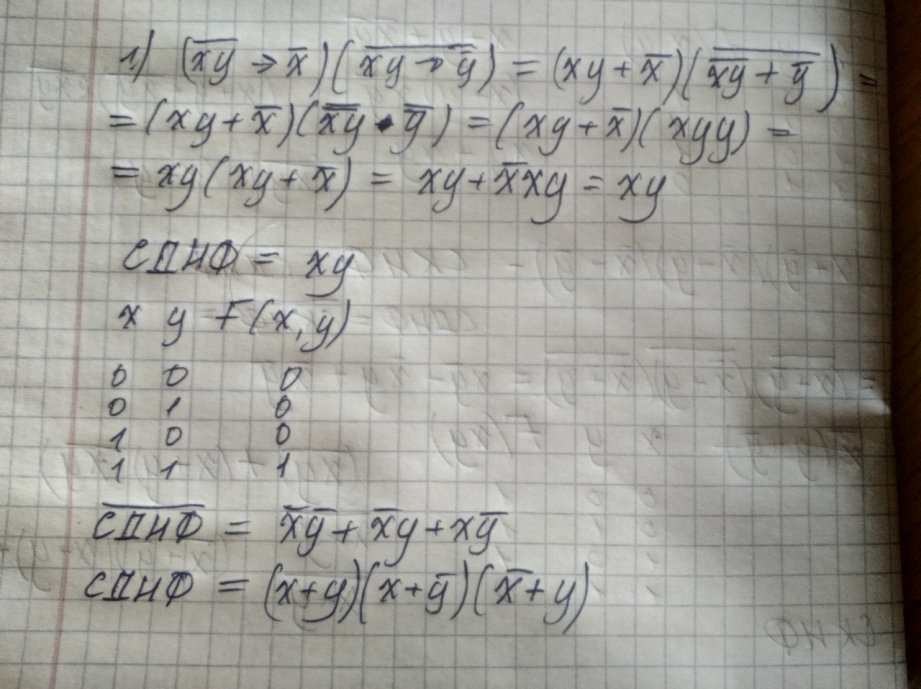 1) (x̅y̅ → x̅)(\overline{xy → y̅}) = (xy + x̅)(\overline{x̅y̅ + y̅}) =
= (xy + x̅)(\overline{\overline{xy}} • \overline{y̅}) = (xy + x̅)(xyy) =
= xy(xy + x̅) = xy + x̅xy = xy
СДНФ = xy
x y F(x,y)
0 0 0
0 1 0
1 0 0
1 1 1
\overline{СДНФ} = x̅y̅ + x̅y + xy̅
СДНФ = (x+y)(x+y̅)(x̅+y)